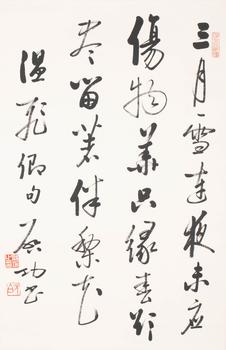 三月雪連夜未應
傷物華只緣春欲
盡留著伴梨花
温飛卿句 啟功書